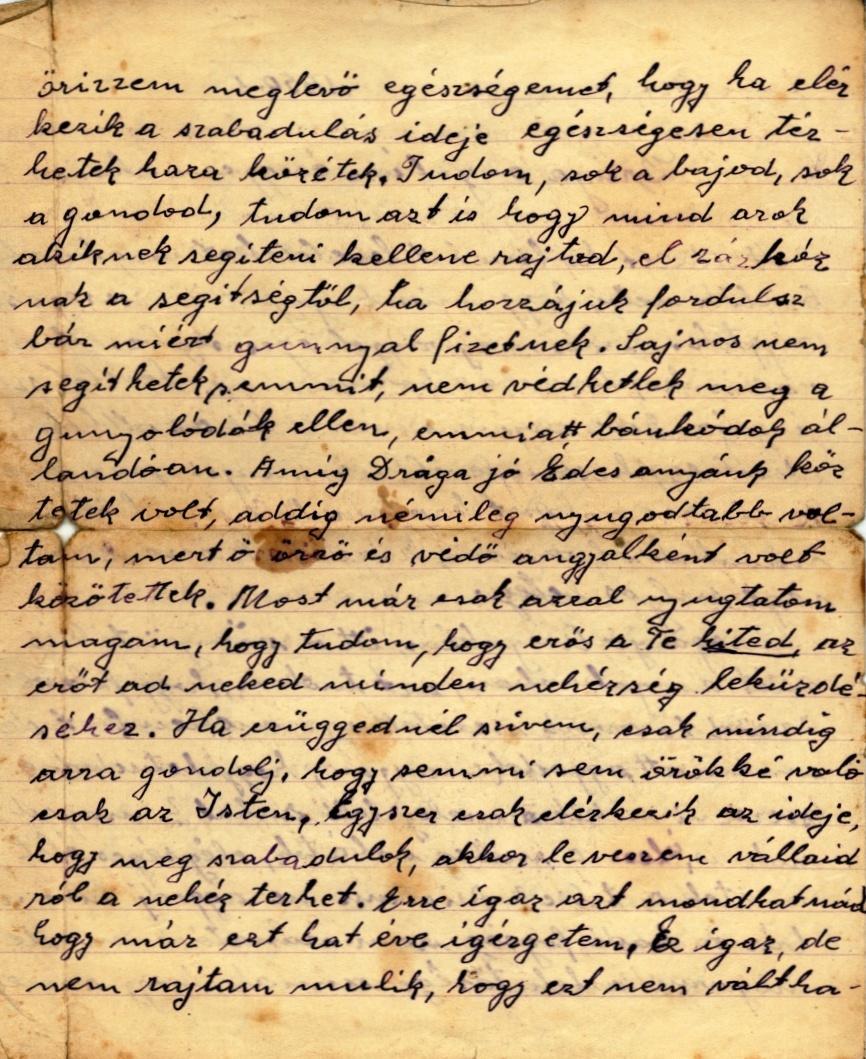 őrizzem meglevő egészségemet, hogy ha elér
kezik a szabadulás ideje egészségesen tér-
hetek haza közétek. Tudom, sok a bajod, sok
a gondod, tudom azt is hogy mind azok
akiknek segíteni kellene rajtad, el zárkóz
nak a segítségtől, ha hozzájuk fordulsz
bár miért gunnyal fizetnek. Sajnos nem
segíthetek semmit, nem védhetlek meg a
gunyolódók ellen, emmiatt bánkódok ál-
landóan. Amíg Drága jó Édes anyánk köz
tetek volt, addig némileg nyugodtabb vol-
tam, mert ő őrző és védő angyalként volt
közötettek. Most már csak azzal nyugtatom
magam, hogy tudom, hogy erős a Te hited, az
erőt ad neked minden nehézség leküzdé-
séhez. Ha csüggednél szivem, csak mindig
arra gondolj, hogy semmi sem örökké való
csak az Isten, Egyszer csak elérkezik az ideje,
hogy meg szabadulok, akkor le veszem vállaid
ról a nehéz terhet. Erre igaz azt mondhatnád
hogy már ezt hat éve igérgetem, Ez igaz, de
nem rajtam mulik, hogy ezt nem váltha-